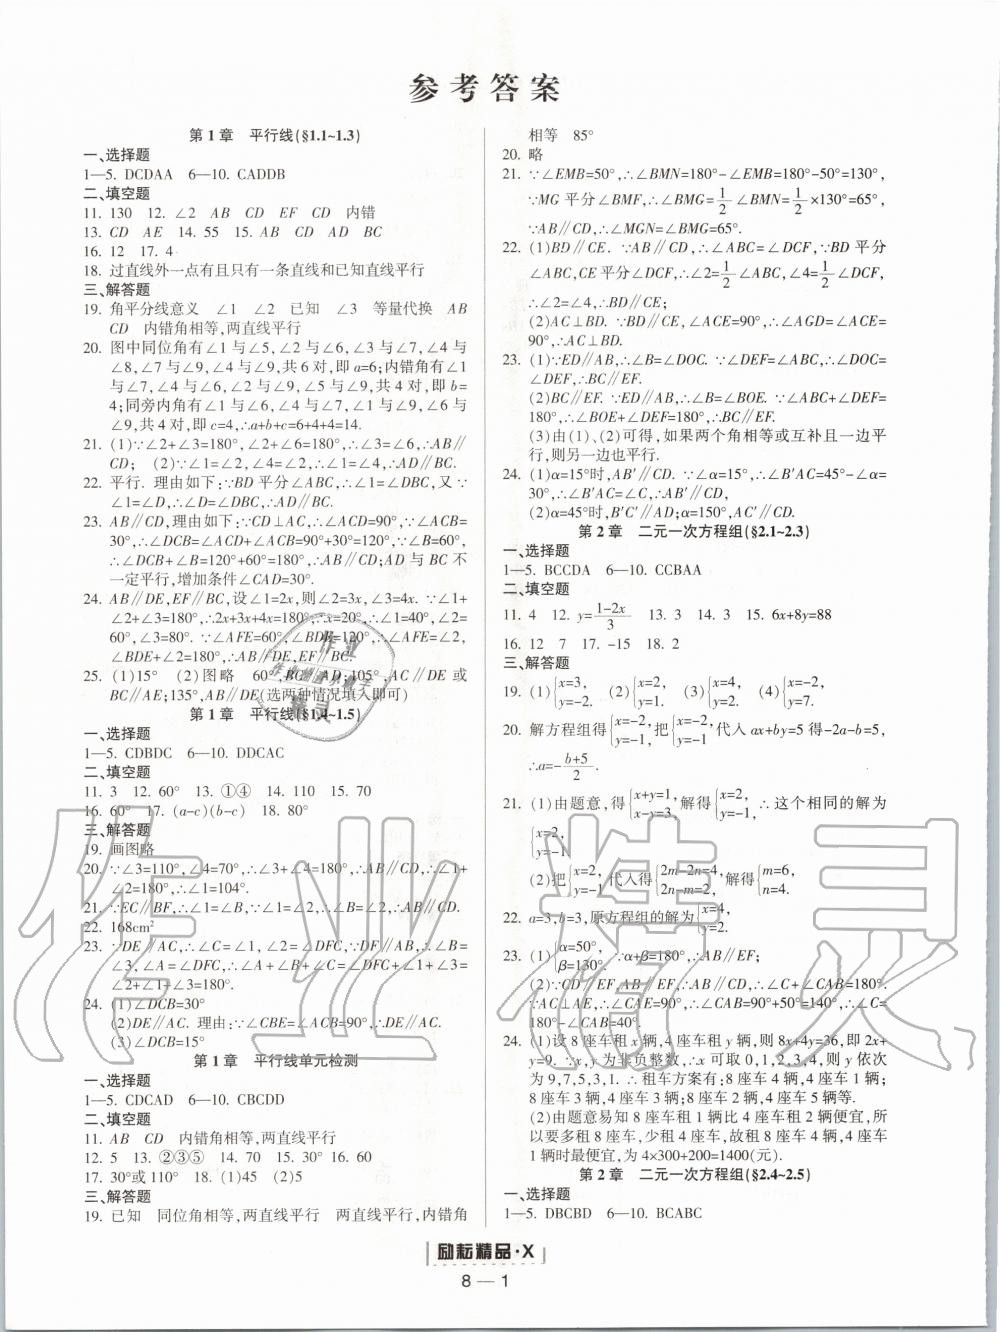 参考答案
第1章　平行线(§1.1~1.3)
一、选择题
1—5. DCDAA　6—10. CADDB
二、填空题
11. 130　12. ∠2　AB　CD　EF　CD　内错
13. CD　AE　14. 55　15. AB　CD　AD　BC
16. 12　17. 4
18. 过直线外一点有且只有一条直线和已知直线平行
三、解答题
19. 角平分线意义　∠1　∠2　已知　∠3　等量代换　AB
CD　内错角相等,两直线平行
20. 图中同位角有∠1与∠5,∠2与∠6,∠3与∠7,∠4与
∠8,∠7与∠9,∠4与∠9,共6对,即a=6;内错角有∠1
与∠7,∠4与∠6,∠2与∠9,∠5与∠9,共4对,即b=
4;同旁内角有∠1与∠6,∠4与∠7,∠1与∠9,∠6与
∠9,共4对,即c=4,∴a+b+c=6+4+4=14.
21. (1)∵∠2+∠3=180°,∠2+∠6=180°,∴∠3=∠6,∴AB∥
CD;　(2)∵∠1=∠2,∠4=∠2,∴∠1=∠4,∴AD∥BC.
22. 平行. 理由如下:∵BD平分∠ABC,∴∠2=∠DBC,又∵
∠1=∠D,∴∠D=∠DBC,∴AD∥BC.
23. AB∥CD,理由如下:∵CD⊥AC,∴∠ACD=90°,∵∠ACB=
30°,∴∠DCB=∠ACD+∠ACB=90°+30°=120°,∵∠B=60°,
∴∠DCB+∠B=120°+60°=180°,∴AB∥CD;AD与BC不
一定平行,增加条件∠CAD=30°.
24. AB∥DE,EF∥BC,设∠1=2x,则∠2=3x,∠3=4x. ∵∠1+
∠2+∠3=180°,∴2x+3x+4x=180°,∴x=20°,∴∠1=40°,∠2=
60°,∠3=80°. ∵∠AFE=60°,∠BDE=120°,∴∠AFE=∠2,
∠BDE+∠2=180°,∴AB∥DE,EF∥BC.
25. (1)15°　(2)图略　60°,BC∥AD;105°,AC∥DE或
BC∥AE;135°,AB∥DE(选两种情况填入即可)
第1章　平行线(§1.4~1.5)
一、选择题
1—5. CDBDC　6—10. DDCAC
二、填空题
11. 3　12. 60°　13. ①④　14. 110　15. 70
16. 60°　17. (a-c)(b-c)　18. 80°
三、解答题
19. 画图略
20. ∵∠3=110°,∠4=70°,∴∠3+∠4=180°,∴AB∥CD,∴∠1+
∠2=180°,∴∠1=104°.
21. ∵EC∥BF,∴∠1=∠B,∵∠1=∠2,∴∠B=∠2,∴AB∥CD.
22. 168cm²
23. ∵DE∥AC,∴∠C=∠1,∠A=∠DFC,∵DF∥AB,∴∠B=
∠3,∠A=∠DFC,∴∠A=∠2,∵∠A+∠B+∠C=∠3+
∠2+∠1=∠3=180°.
24. (1)∠DCB=30°
(2)DE∥AC. 理由:∵∠CBE=∠ACB=90°,∴DE∥AC.
(3)∠DCB=15°
第1章　平行线单元检测
一、选择题
1—5. CDCAD　6—10. CBCDD
二、填空题
11. AB　CD　内错角相等,两直线平行
12. 5　13. ②③⑤　14. 70　15. 30°　16. 60
17. 30°或110°　18. (1)45　(2)70
三、解答题
19. 已知　同位角相等,两直线平行　两直线平行,内错角
相等　85°
20. 略
21. ∵∠EMB=50°,∴∠BMN=180°-∠EMB=180°-50°=130°,
∵MG平分∠BMF,∴∠BMG=1/2∠BMN=1/2×130°=65°,
∵AB∥CD,∴∠MGN=∠BMG=65°.
22. (1)BD∥CE. ∵AB∥CD,∴∠ABC=∠DCF,∵BD平分
∠ABC,CE平分∠DCF,∴∠2=1/2∠ABC,∠4=1/2∠DCF,
∴∠2=∠4,∴BD∥CE;
(2)AC⊥BD. ∵BD∥CE,∠ACE=90°,∴∠DGC=∠ACE=
90°,∴AC⊥BD.
23. (1)∵ED∥AB,∴∠B=∠DOC. ∵∠DEF=∠ABC,∴∠DOC=
∠DEF,∴BC∥EF.
(2)BC∥EF. ∵ED∥AB,∴∠B=∠BOE. ∵∠ABC+∠DEF=
180°,∴∠BOE+∠DEF=180°,∴BC∥EF.
(3)由(1)、(2)可得,如果两个角相等或互补且一边平
行,则另一边也平行.
24. (1)α=15°时,AB′∥CD. ∵∠α=15°,∴∠B′AC=45°-∠α=
30°,∴∠B′AC=∠C,∴AB′∥CD,
(2)α=45°时,B′C′∥AD;α=150°,AC′∥CD.
第2章　二元一次方程组(§2.1~2.3)
一、选择题
1—5. BCCDA　6—10. CCBAA
二、填空题
11. 4　12. y=(1-2x)/3　13. 3　14. 3　15. 6x+8y=88
16. 12　7　17. -15　18. 2
三、解答题
19. (1){x=3, y=-2.　(2){x=2, y=1.　(3){x=4, y=2.　(4){x=-2, y=7.
20. 解方程组得{x=-2, y=-1,把{x=-2, y=-1,代入ax+by=5得-2a-b=5,
∴a=-(b+5)/2.
21. (1)由题意,得{x+y=1, x-y=3,解得{x=2, y=-1, ∴这个相同的解为
{x=2, y=-1
(2)把{x=2, y=-1代入得{2m-2n=4, 2n-m=2,解得{m=6, n=4.
22. a=3,b=3,原方程组的解为{x=4, y=2.
23. (1){α=50°, β=130°. ∵α+β=180°,∴AB∥EF;
(2)∵CD∥EF,AB∥EF,∴AB∥CD,∴∠C+∠CAB=180°.
∵AC⊥AE,∴∠CAE=90°,∴∠CAB=90°+50°=140°,∴∠C=
180°-∠CAB=40°.
24. (1)设8座车租x辆,4座车租y辆,则8x+4y=36,即2x+
y=9. ∵x,y为非负整数,∴x可取0,1,2,3,4,则y依次
为9,7,5,3,1. ∴租车方案有:8座车4辆,4座车1辆;
8座车3辆,4座车3辆;8座车2辆,4座车5辆等.
(2)由题意易知8座车租1辆比4座车租2辆便宜,所
以要多租8座车,少租4座车,故租8座车4辆,4座车
1辆时最便宜,为4×300+200=1400(元).
第2章　二元一次方程组(§2.4~2.5)
一、选择题
1—5. DBCBD　6—10. BCABC
励耘精品·X
8—1
作业精灵